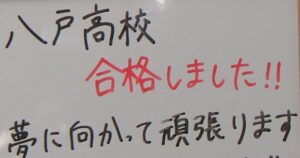 八戸高校
合格しました!!
夢に向かって頑張ります